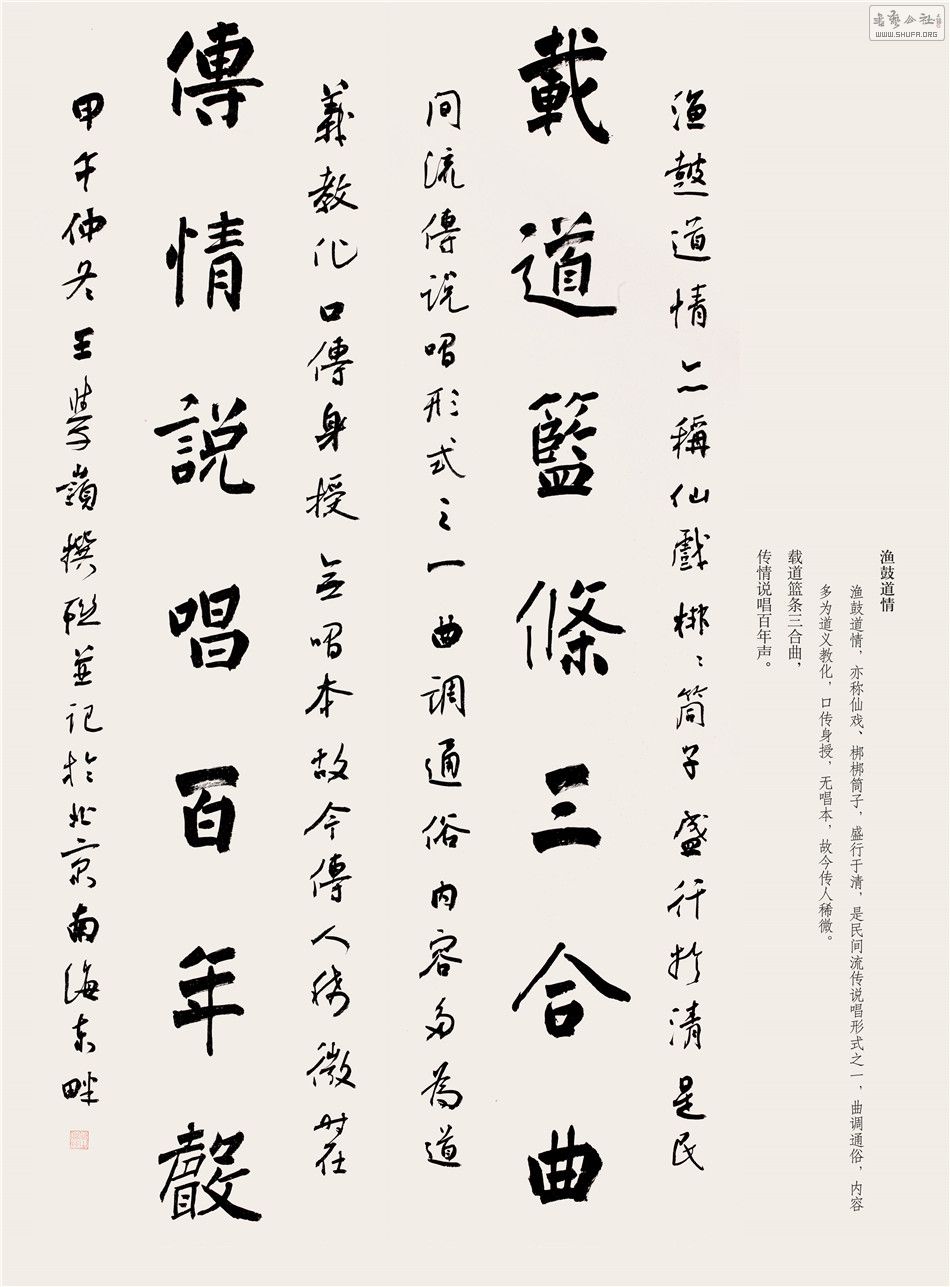 書藝公社
WWW.SHUFA.ORG
渔鼓道情
渔鼓道情，亦称仙戏、梆梆筒子，盛行于清，是民间流传说唱形式之一，曲调通俗，内容
多为道义教化，口传身授，无唱本，故今传人稀微。
载道篮条三合曲，
传情说唱百年声。
渔鼓道情亦稱仙戲梆〻筒子盛行於清是民
載道籃條三合曲
间流傳说唱形式之一曲调通俗内容多為道
義教化口傳身授無唱本故今傳人稀微时在
傳情説唱百年聲
甲午仲冬王學嶺撰联並记於北京南海东畔